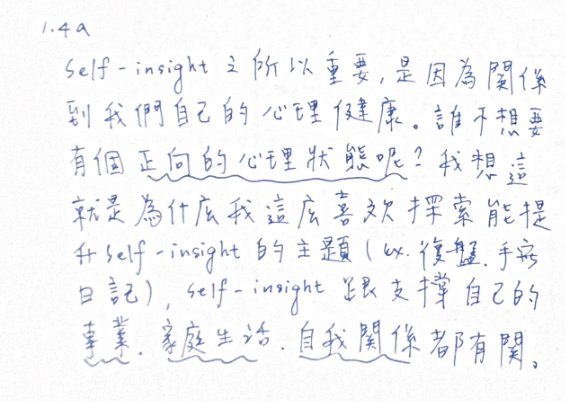 1.4a
Self-insight 之所以重要,是因為關係
到我們自己的心理健康。誰不想要
有個正向的心理狀態呢?我想這
就是為什庅我這庅喜欢探索能提
升self-insight的主題(ex.復盤.手寫
日記),self-insight 跟支撐自己的
事業.家庭生活.自我關係都有関。